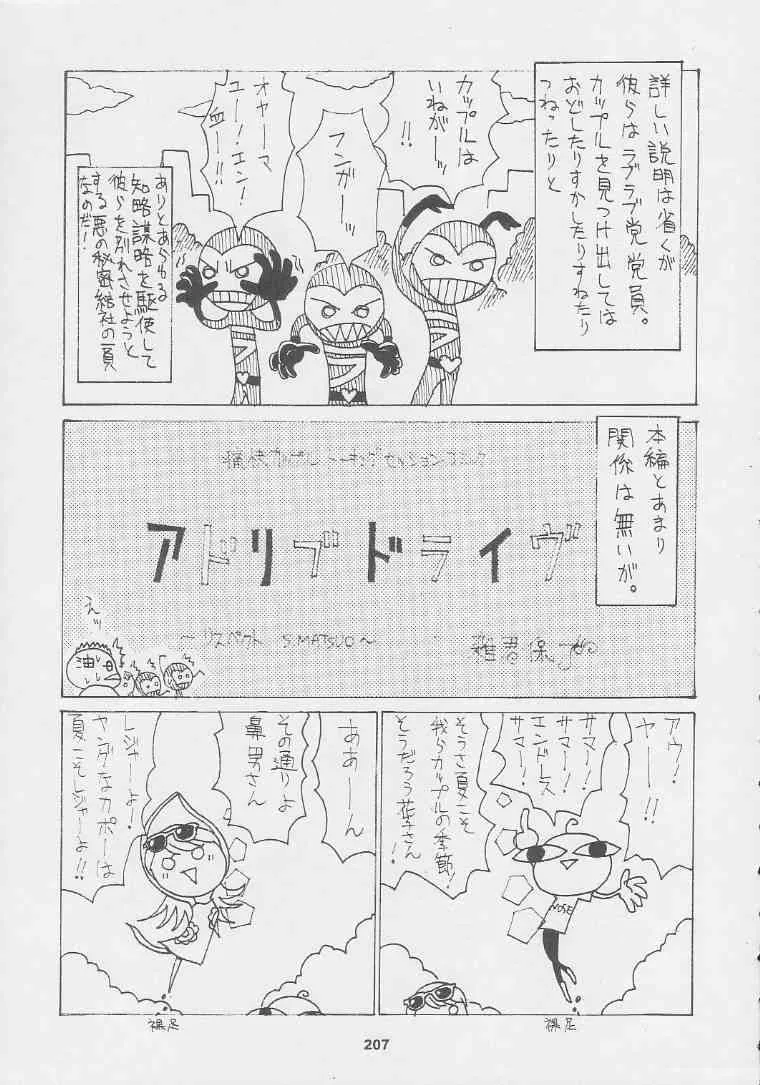 詳しい説明は省くが
彼らはラブラブ党党員。
カップルを見つけ出しては
おどしたりすかしたりすねたり
つねったりと
カップルは
いねがーッ
!!
フンガーッ
オヤーマ
ユー!エン!
ありとあらゆる
知略謀略を駆使して
彼らを別れさせようと
する悪の秘密結社の一員
なのだ!
本編とあまり
関係は無いが。
痛快カップルトーキングセッションコミック
アドリブドライヴ
~リスペクト S.MATSUO~
えッ
油
アウ!
ヤー!!
サマー!
サマー!
エンドレス
サマー!
そうさ夏こそ
我らカップルの季節!
そうだろう花子さん!
NOSE
裸足
ああーん
その通りよ
鼻男さん
レジャーよー!
ヤングなカポーは
夏こそレジャーよ!!
裸足
207